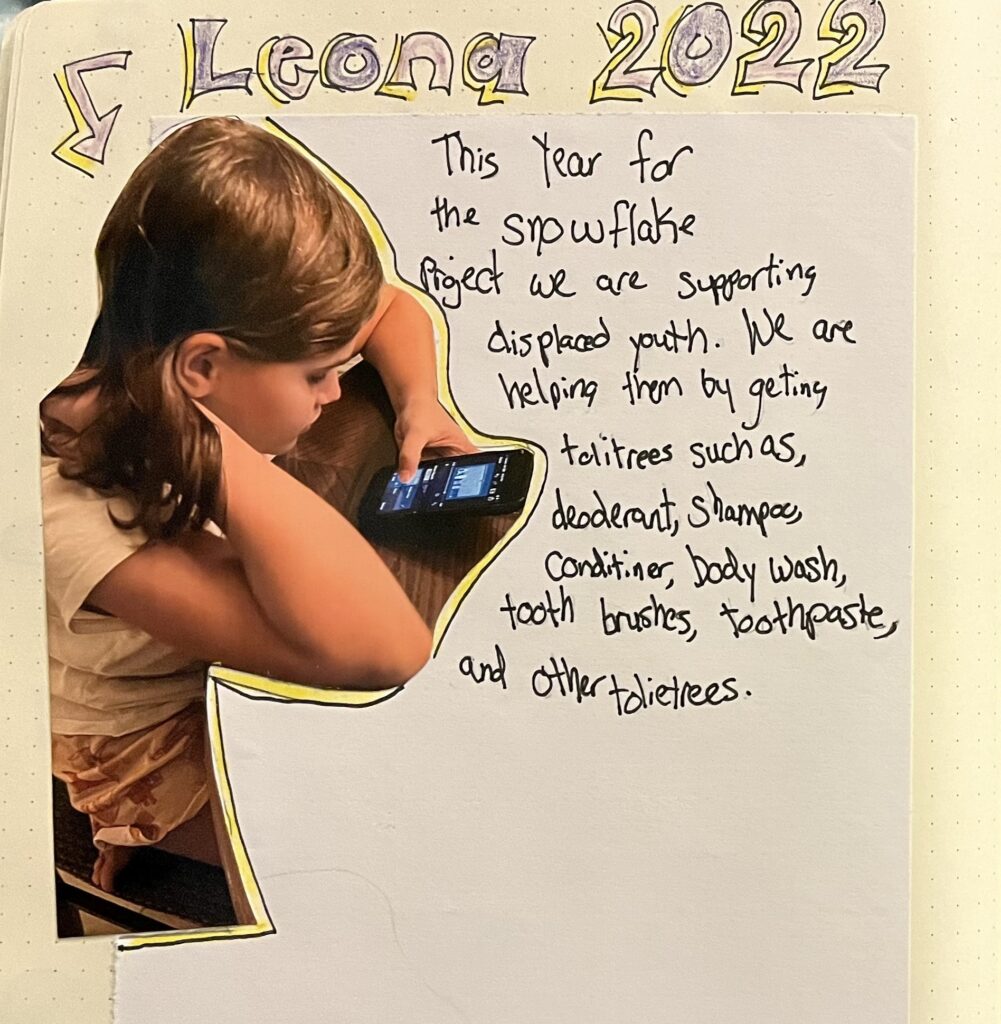 Leona 2022
This Year for
the snowflake
Project we are supporting
displaced youth. We are
helping them by geting
tolitrees such as,
deoderant, Shampoo,
Conditiner, body wash,
tooth brushes, toothpaste,
and other tolietrees.